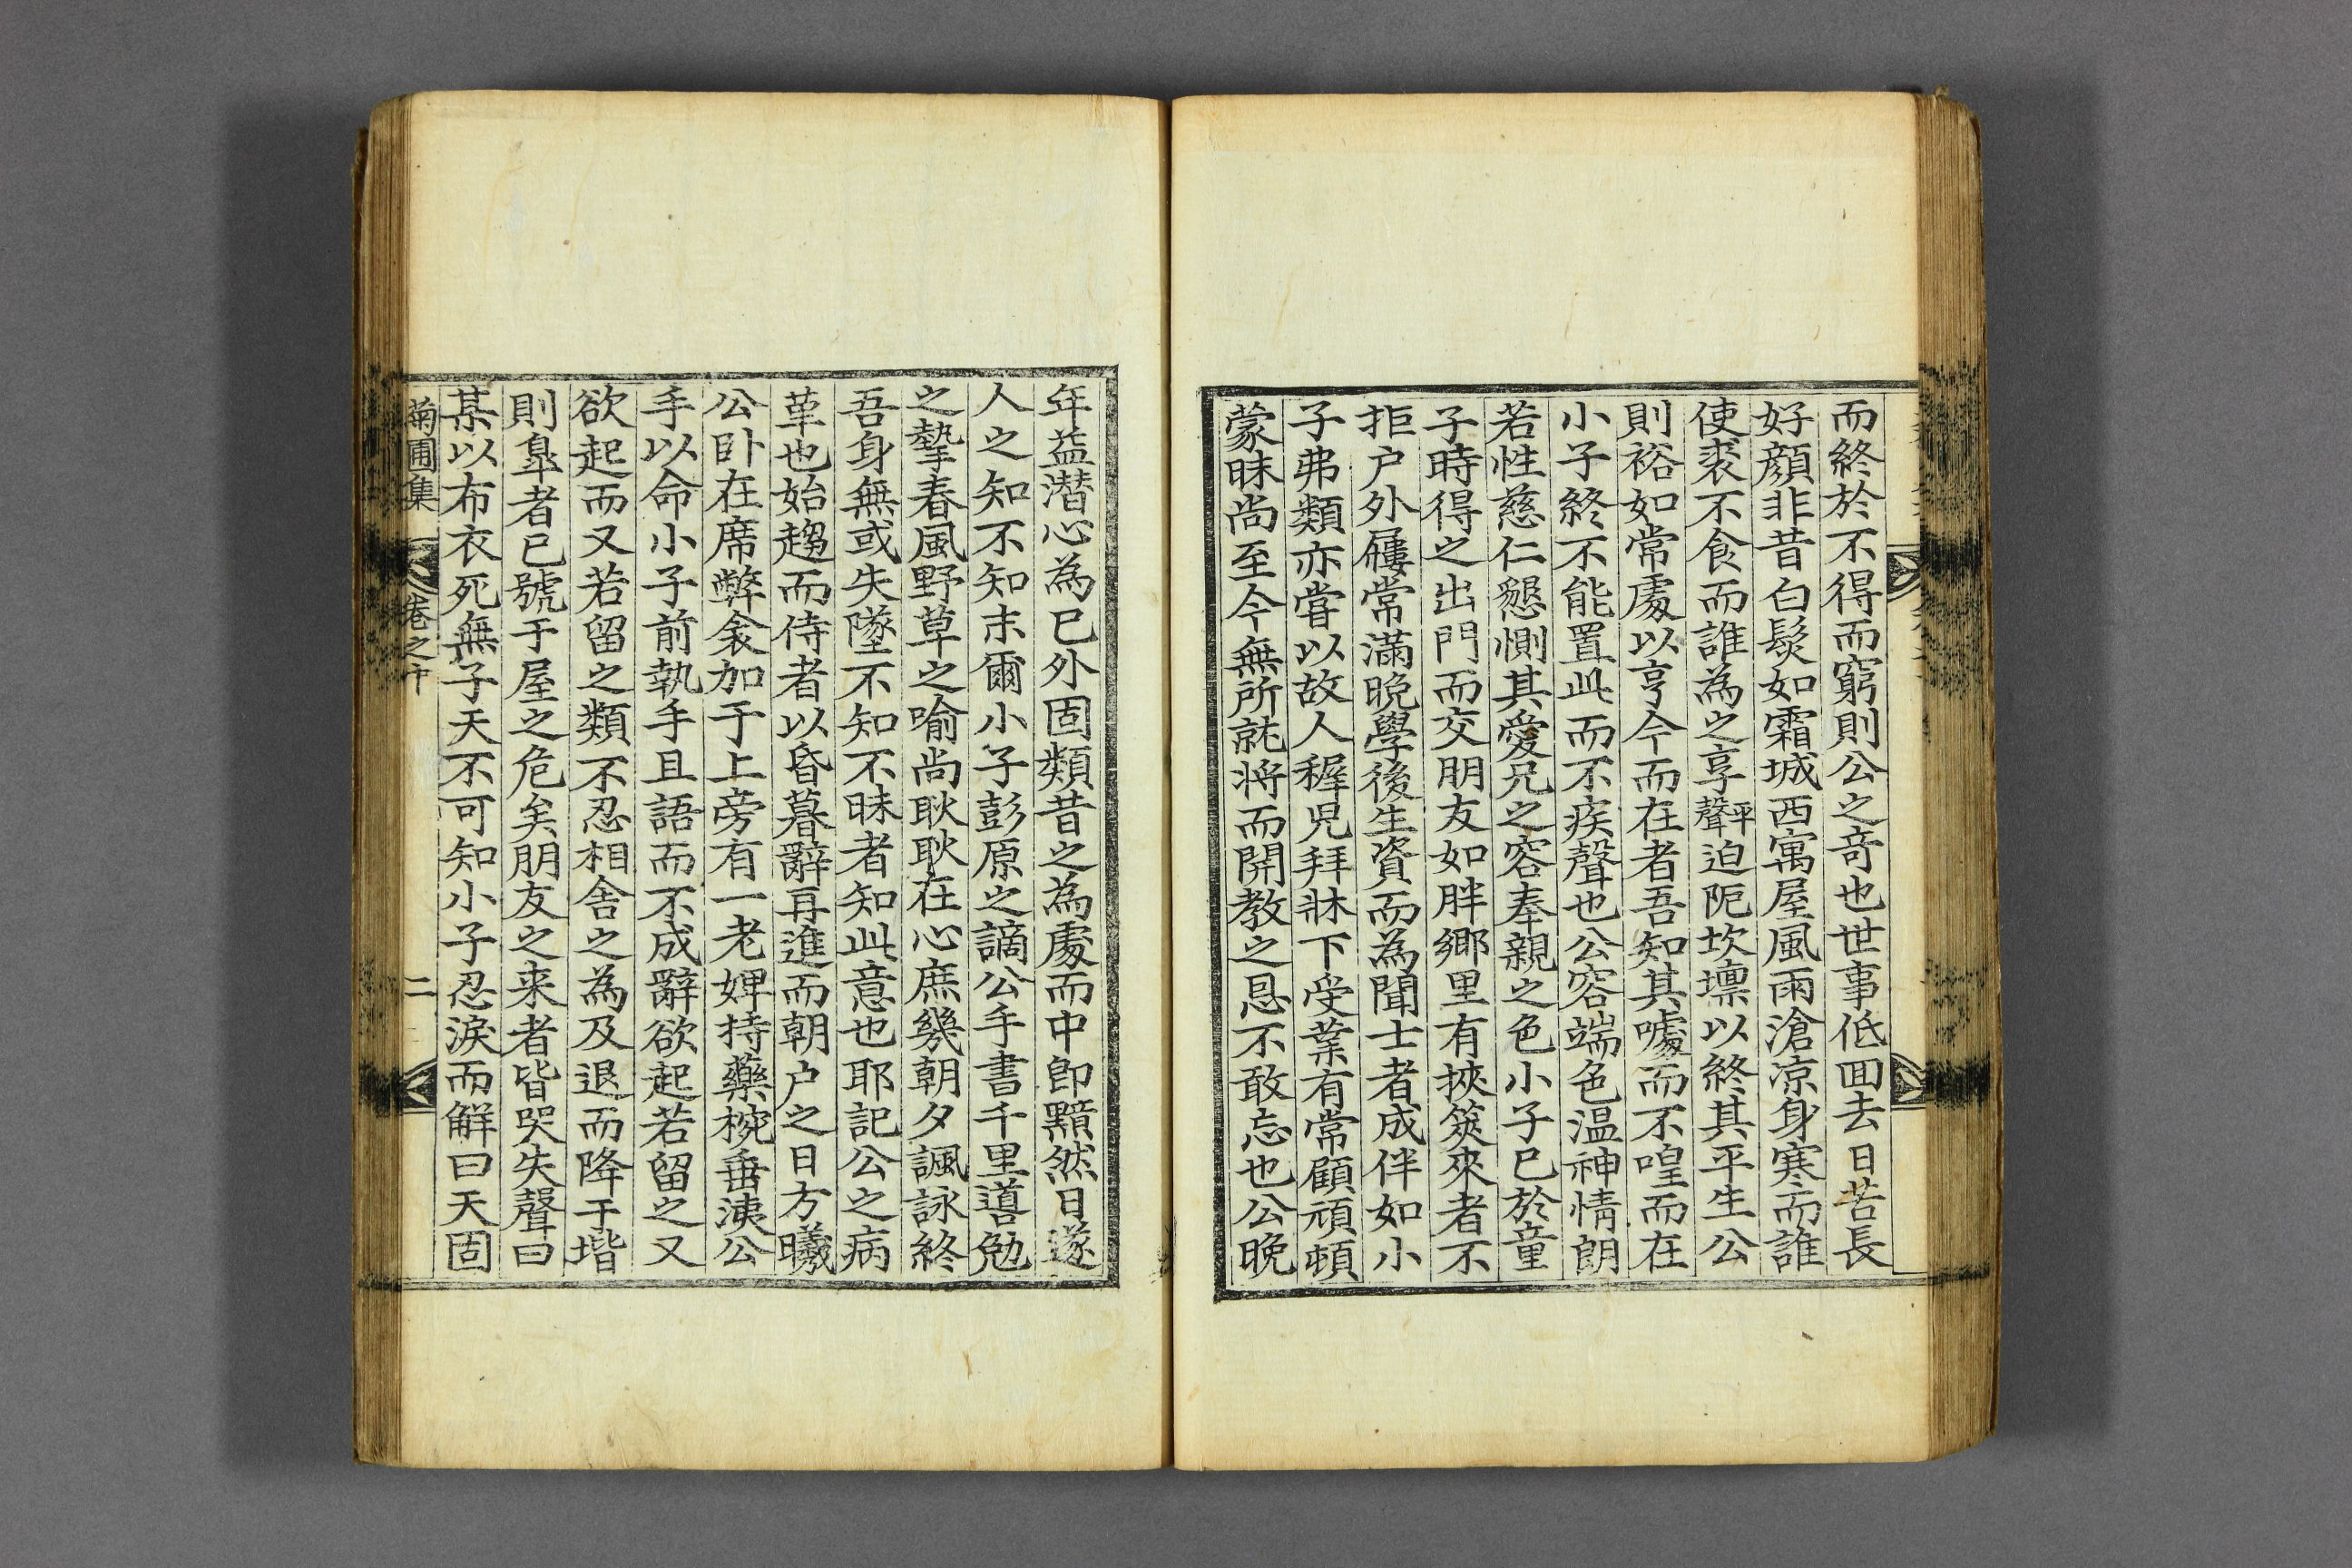 而終於不得而窮則公之奇也世事低回去日苦長
好顔非昔白髮如霜城西寓屋風雨滄凉身寒而誰
使裘不食而誰爲之享平聲迫阨坎壈以終其平生公
則裕如常處以亨今而在者吾知其噓而不喤而在
小子終不能置此而不疾聲也公容端色温神情朗
若性慈仁懇惻其愛兄之容奉親之色小子已於童
子時得之出門而交朋友如胖鄉里有挾筴來者不
拒户外屨常滿晩學後生資而爲聞士者成伴如小
子弗類亦嘗以故人穉兒拜牀下受業有常顧頑頓
蒙昧尚至今無所就將而開教之恩不敢忘也公晩
年益潜心爲已外固類昔之爲處而中卽黯然日遂
人之知不知末爾小子彭原之謫公手書千里噵勉
之摯春風野草之喩尚耿耿在心庶幾朝夕諷詠終
吾身無或失墜不知不昧者知此意也耶記公之病
革也始趨而侍者以昏暮辭再進而朝户之日方曦
公卧在席弊衾加于上旁有一老婢持藥椀垂洟公
手以命小子前執手且語而不成辭欲起若留之又
欲起而又若留之類不忍相舍之爲及退而降于堦
則臯者已號于屋之危矣朋友之来者皆哭失聲曰
某以布衣死無子天不可知小子忍淚而解曰天固
菊圃集 卷之十 二